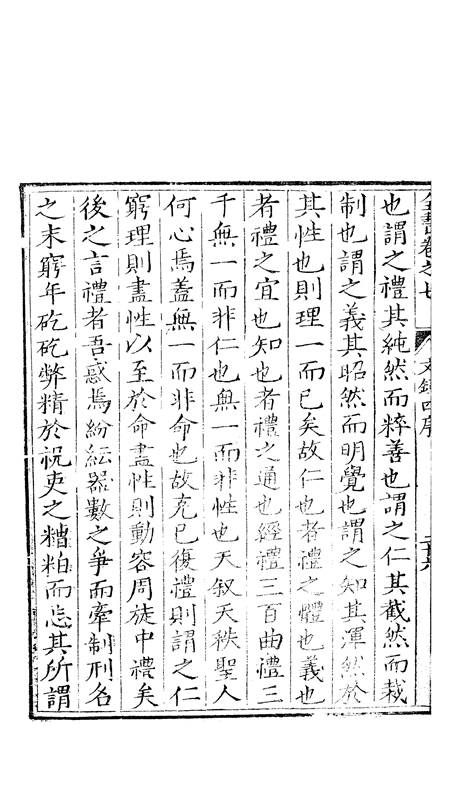 全書卷之七 文錄四序 二十六
也謂之禮其純然而粹善也謂之仁其截然而裁
制也謂之義其昭然而明覺也謂之知其渾然於
其性也則理一而已矣故仁也者禮之體也義也
者禮之宜也知也者禮之通也經禮三百曲禮三
千無一而非仁也無一而非性也天叙天秩聖人
何心焉蓋無一而非命也故克已復禮則謂之仁
窮理則盡性以至於命盡性則動容周旋中禮矣
後之言禮者吾惑焉紛紜器數之爭而牽制刑名
之末窮年矻矻弊精於祝史之糟粕而忘其所謂